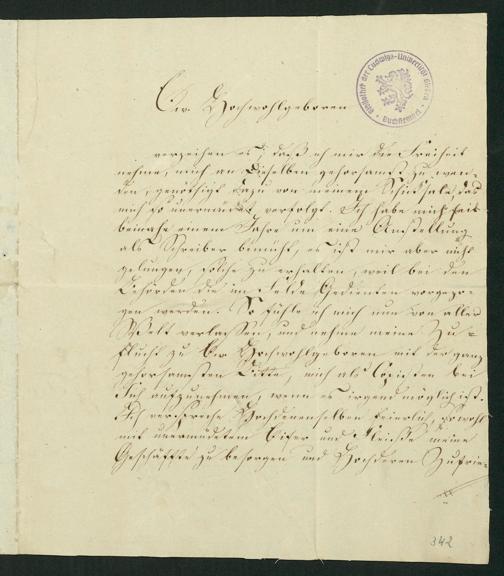 Bibliothek der Ludwigs-Universität Giessen
Buchstempel
Ew. Hochwohlgeboren
verzeihen es, daß ich mir die Freiheit
nehme, mich an Dieselben gehorsamst zu wen-
den, genöthigt dazu von meinem Schicksale, das
mich so unermüdet verfolgt. Ich habe mich seit
beinahe einem Jahre um eine Anstellung
als Schreiber bemüht, es ist mir aber nicht
gelungen, solche zu erhalten, weil bei den
Behörden die im Felde Gedienten vorgezo-
gen werden. So fühle ich mich nun von aller
Welt verlassen, und nehme meine Zu-
flucht zu Ew Hochwohlgeboren mit der ganz
gehorsamsten Bitte, mich als Copisten bei
Sich aufzunehmen, wenn es irgend möglich ist.
Ich verspreche Hochdenenselben feierlich, sowohl
mit unermüdetem Eifer und Fleiße meine
Geschäffte zu besorgen und Hochderen Zufrie-
342